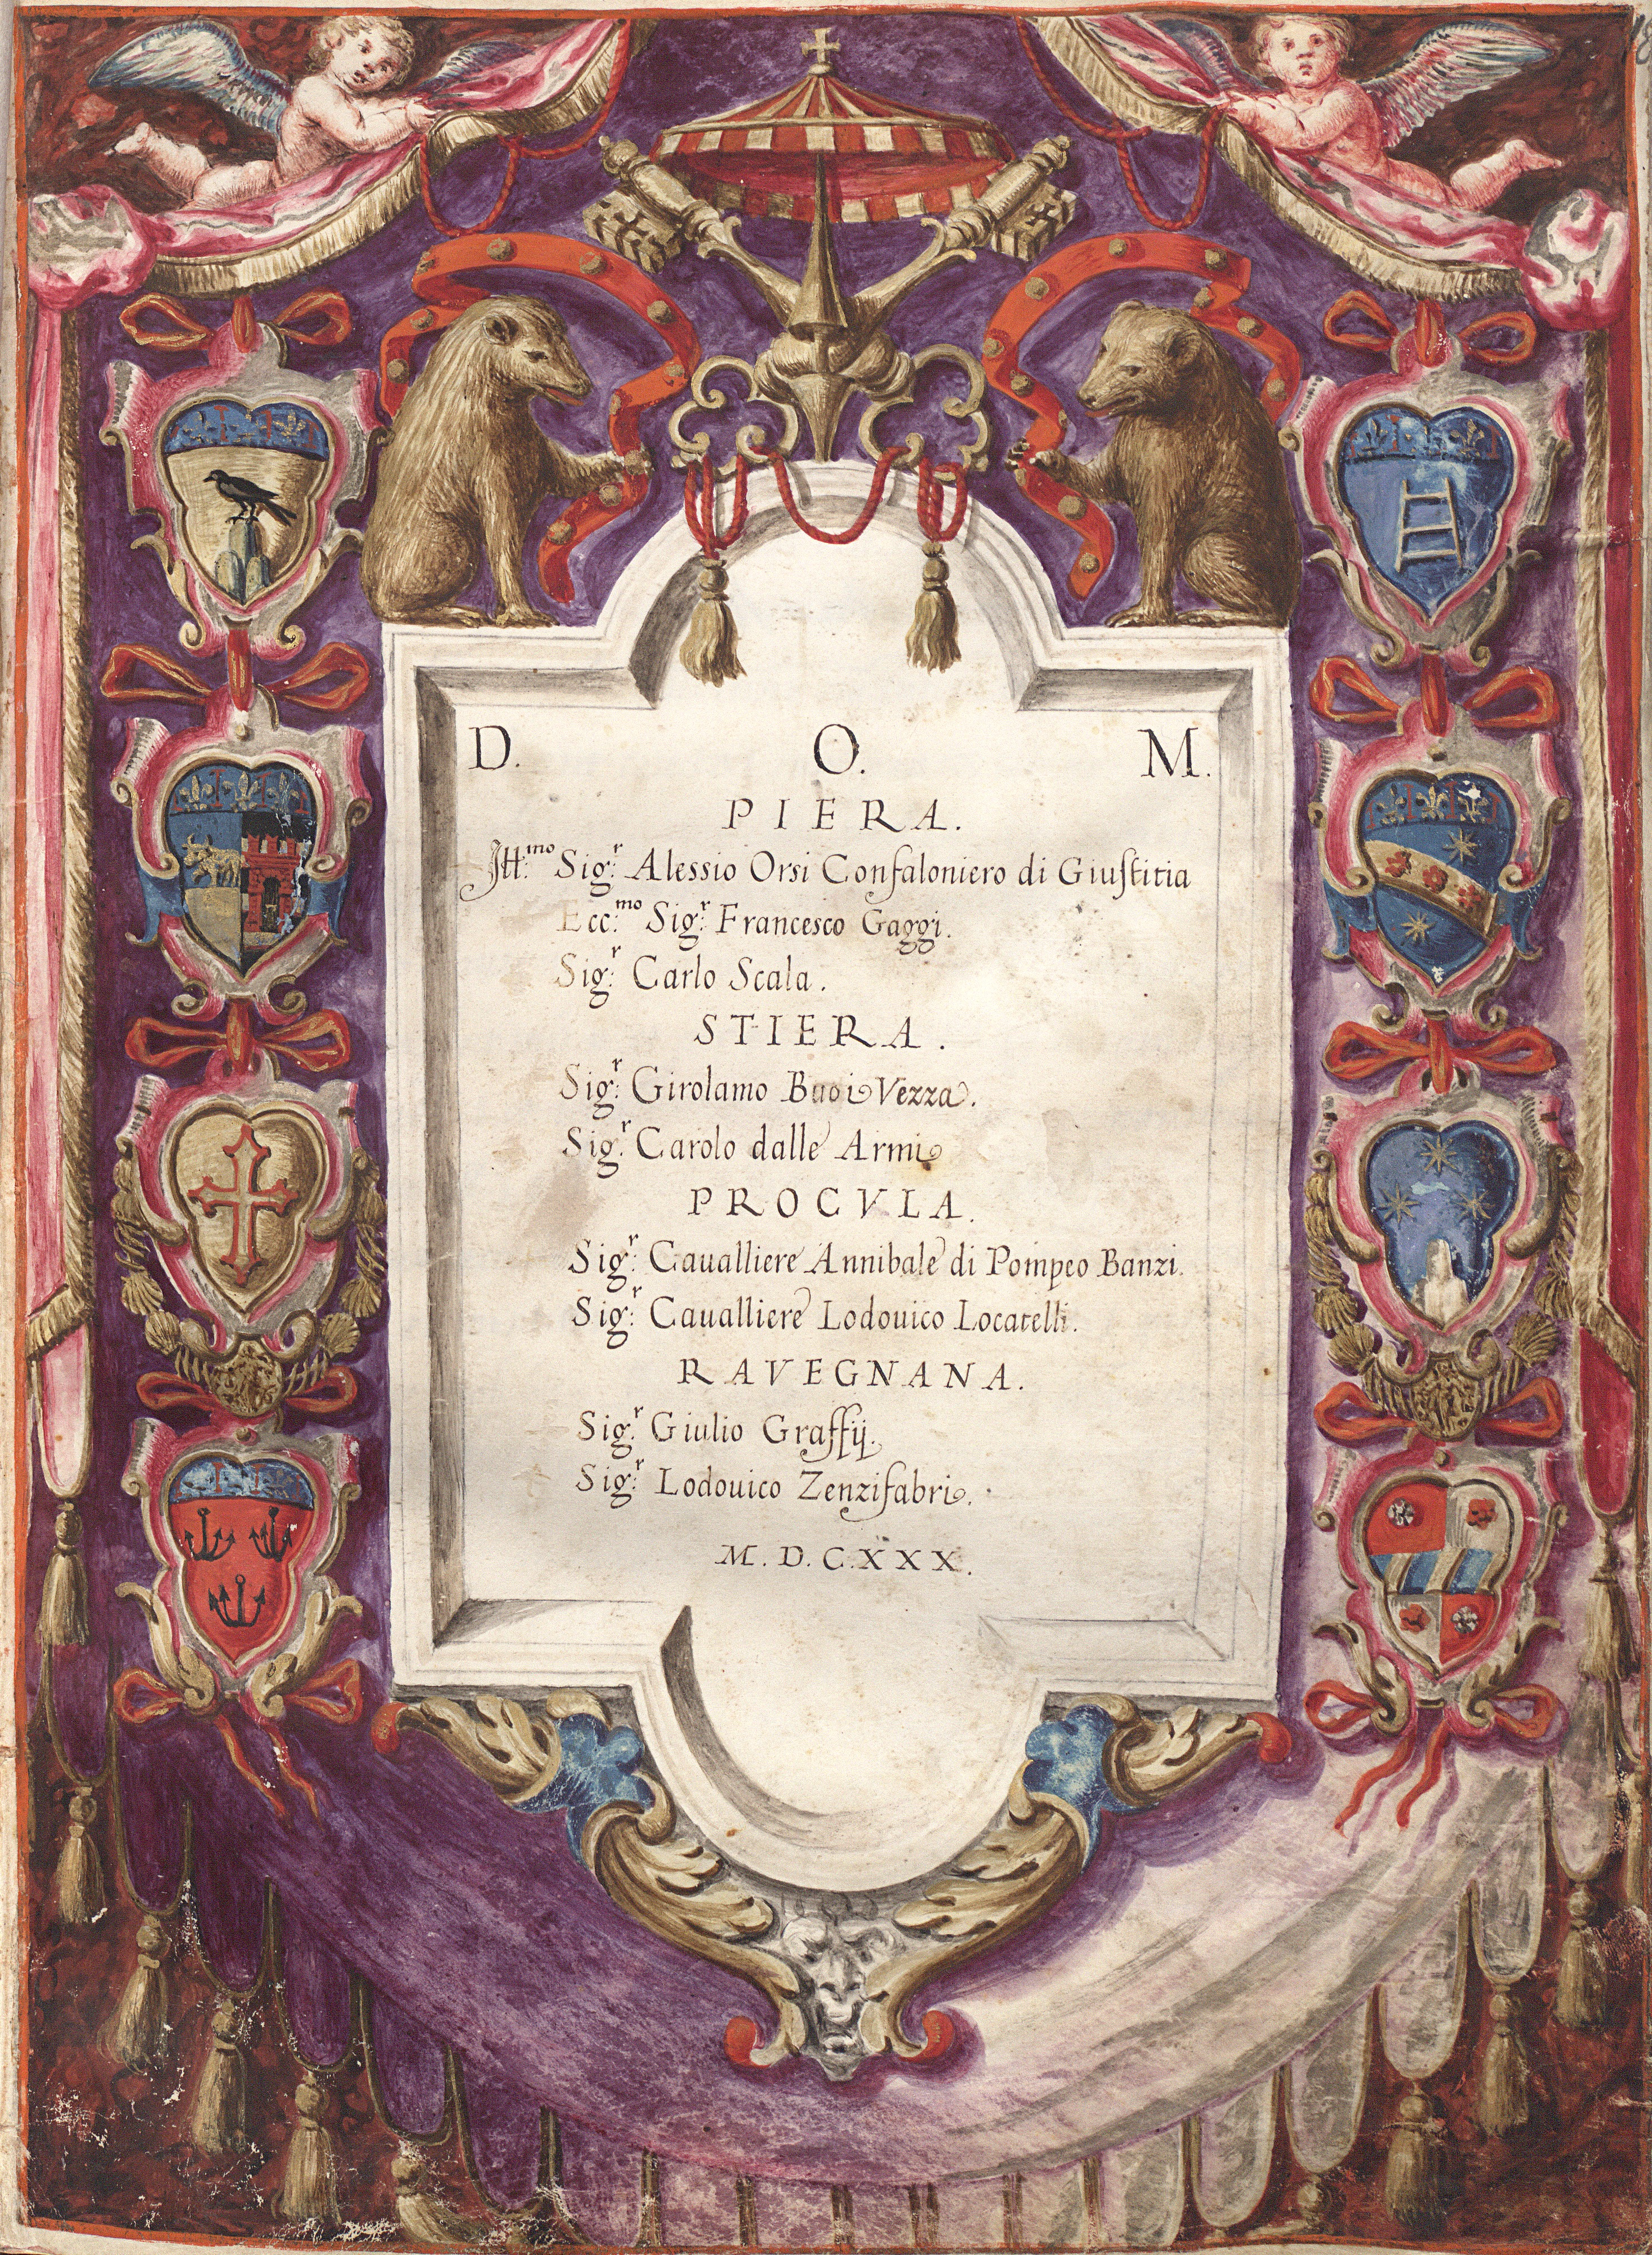 D. O. M.
PIERA.
Ill:mo Sig:r Alessio Orsi Confaloniero di Giuſtitia
Ecc:mo Sig:r Francesco Gaggi.
Sig:r Carlo Scala.
STIERA.
Sig:r Girolamo Buoi Vezza.
Sig:r Carolo dalle Armi
PROCVLA.
Sig:r Caualliere Annibale di Pompeo Banzi.
Sig:r Caualliere Lodouico Locatelli.
RAVEGNANA.
Sig:r Giulio Graffij.
Sig:r Lodouico Zenzifabri.
M.D.C.XXX.